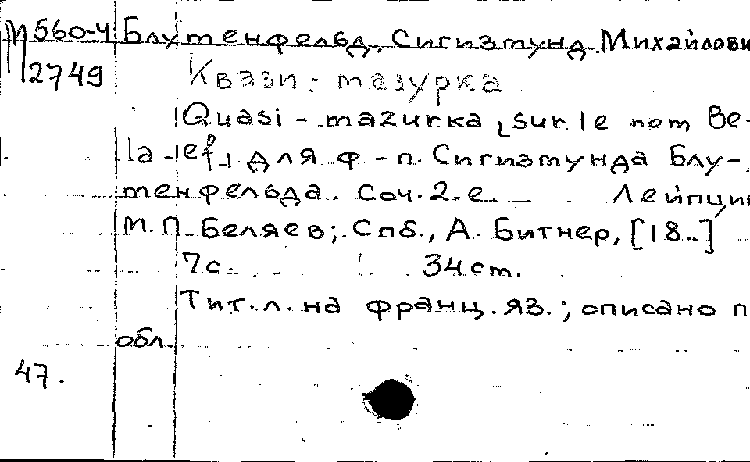 М560-4 Блуменфельд, Сигизмунд Михайлови
2749 Квази-мазурка
Quasi-mazurka [sur le nom Be-
la-ef] для ф-п. Сигизмунда Блу-
менфельда. Соч. 2. е. Лейпциг
М.П. Беляев; Спб., А. Битнер, [18..]
7с. 34 cm.
Тит. л. на франц. яз.; описано п
обл.
47.